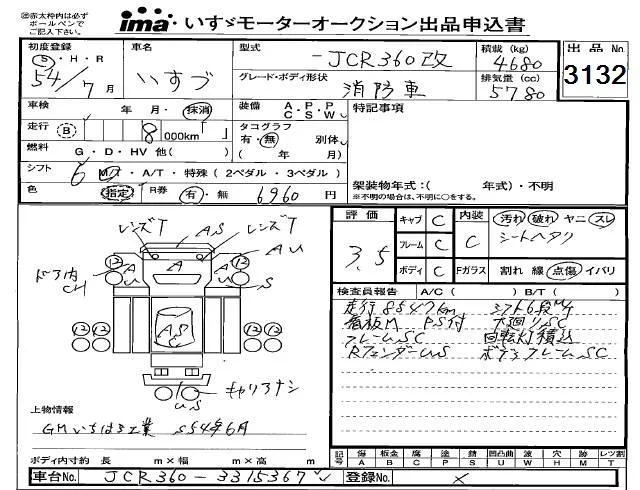 ㊟赤太枠内は必ず
ボールペンで
ご記入下さい。
ima いすゞモーターオークション出品申込書
初度登録 車名 型式 積載 (kg) 出品No.
S・H・R いすゞ -JCR360改 4680 3132
54/7月 グレード・ボディ形状 排気量 (cc)
消防車 5780
車検 年 月・抹消 装備 A・P・P C・S・W 特記事項
走行 B 8 000km タコグラフ 有・無 別体
燃料 G・D・HV 他( ) ( 年 月)
シフト 6 M/T・A/T・特殊(2ペダル・3ペダル)
架装物年式:( 年式)・不明
色 指定 R券 有・無 6960円
※不明の場合は、不明に○をする。
評価 キャブ C 内装 汚れ 破れ ヤニ スレ
3.5 フレーム C C シートヘタリ
ボディ C Fガラス 割れ 線 点傷 イバリ
レンズT AS レンズT
AU
ドア内
CH
A A A
U S
12 12 12 12
S
A
S C
キャリアナシ
US
検査員報告 A/C( ) B/T( )
走行8547km シフト6段M/T
看板M PS付 大廻りSC
フレームSC 回転灯積込
RフェンダーUS ボデーフレームSC
上物情報
GMいちはら工業 S54年6月
ボディ内寸約 長 m×幅 m×高 m
記号 傷 A 板金 B 腐 C 塗 P 錆 S 凹凸曲 U 波 W 穴 H 跡 M レツ割 T
車台No. JCR360-3315367 登録No. ×